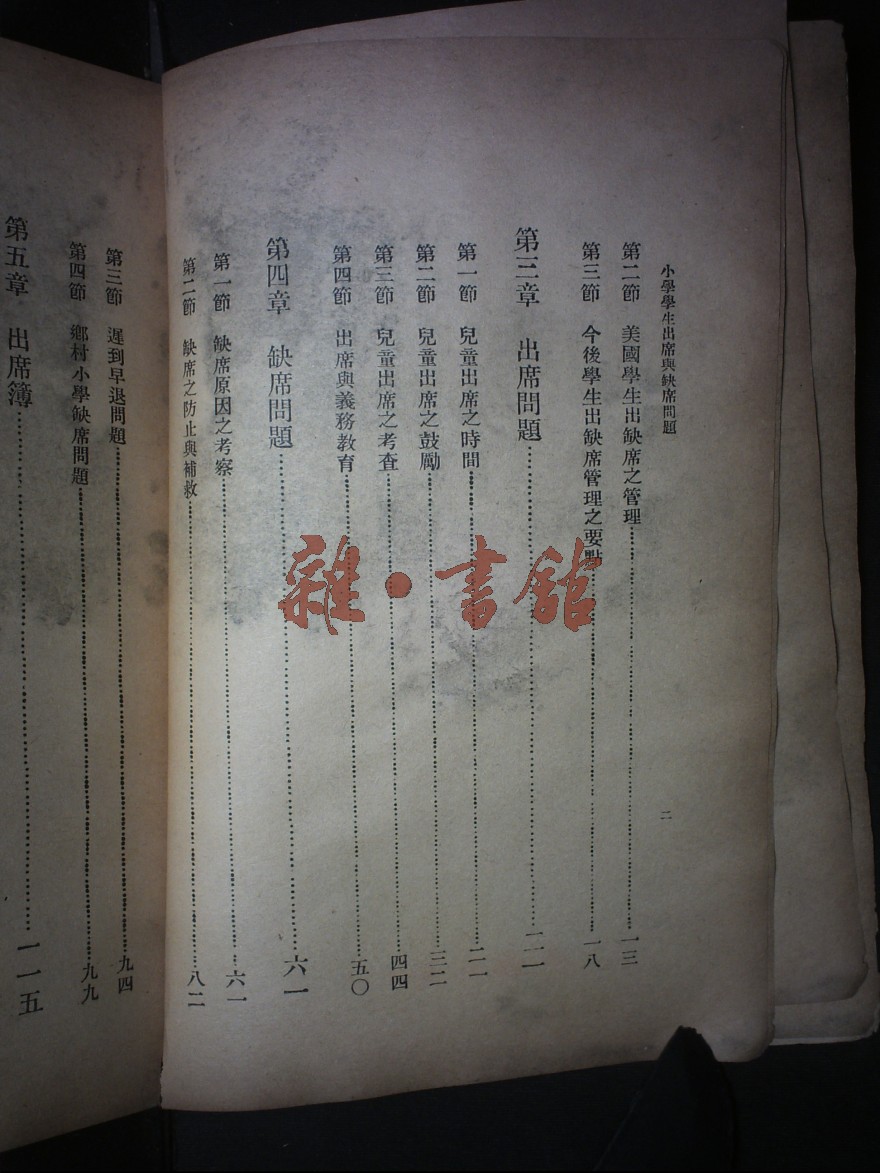 小學學生出席與缺席問題
二
第二節 美國學生出缺席之管理……一三
第三節 今後學生出缺席管理之要點……一八
第三章 出席問題……二一
第一節 兒童出席之時間……二一
第二節 兒童出席之鼓勵……三二
第三節 兒童出席之考查……四四
第四節 出席與義務教育……五〇
第四章 缺席問題……六一
第一節 缺席原因之考察……六一
第二節 缺席之防止與補救……八二
第三節 遲到早退問題……九四
第四節 鄉村小學缺席問題……九九
第五章 出席簿……一一五
雜·書館